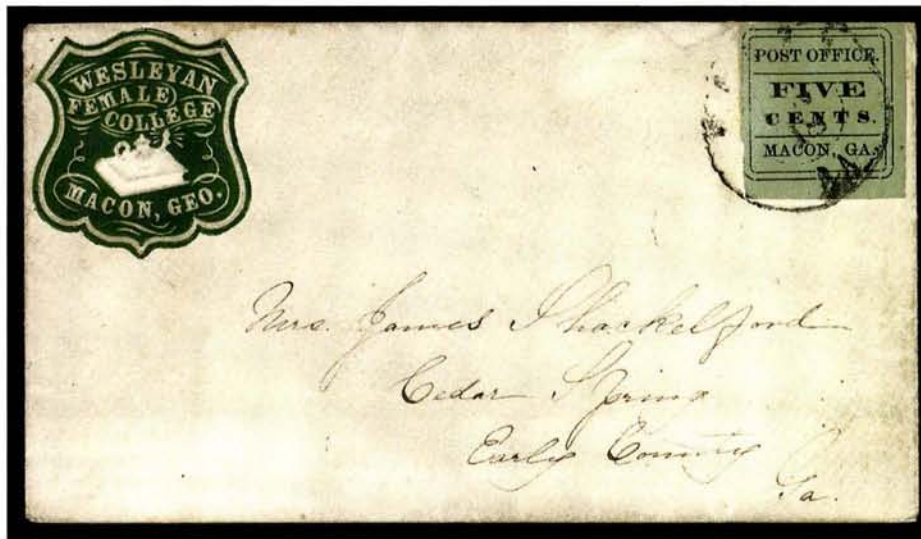 WESLEYAN
FEMALE
COLLEGE
MACON, GEO.
POST OFFICE.
FIVE
CENTS.
MACON, GA.
Mrs. James Shackelford
Cedar Spring
Early County
Ga.